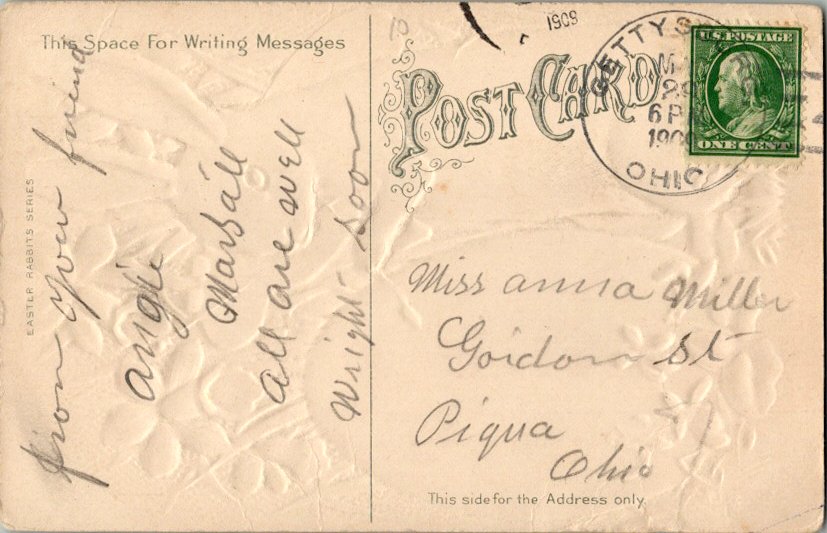 This Space For Writing Messages
EASTER RABBITS SERIES
from your friend
angie
Marsall
all are well
Wright soon
10
1909
POST CARD
GETTYSBURG
29
6 P
1909
OHIO
U.S. POSTAGE
ONE CENT
Miss anna Miller
Gordon St
Piqua
Ohio
This side for the Address only.